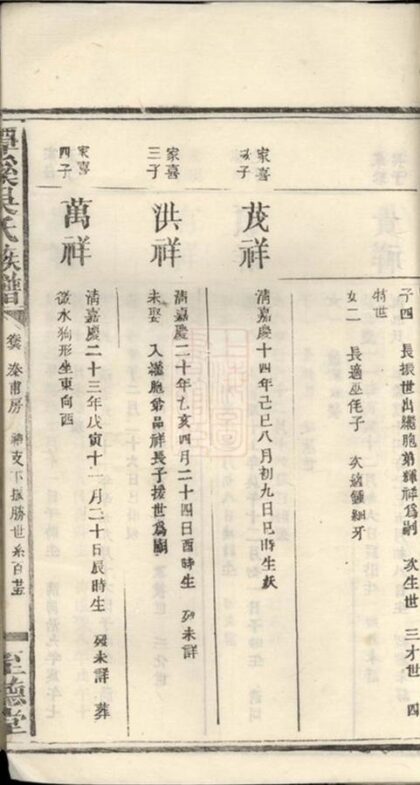 子四 長振世出繼胞弟輝祥爲嗣 次生世 三才世 四
特世
女二 長適巫 子 次適鍾 牙
家喜
次子
茂祥
清嘉慶十四年己巳八月初九日巳時生 妖
家喜
三子
洪祥
清嘉慶二十年乙亥四月二十四日酉時生 歿未詳
未娶 入繼胞弟品祥長子接世爲嗣
家喜
四子
萬祥
清嘉慶二十三年戊寅十一月二十日辰時生 歿未詳 葬
水狗形坐東向西
吳氏族譜
卷 泰甫房 振勝世系百
至德堂